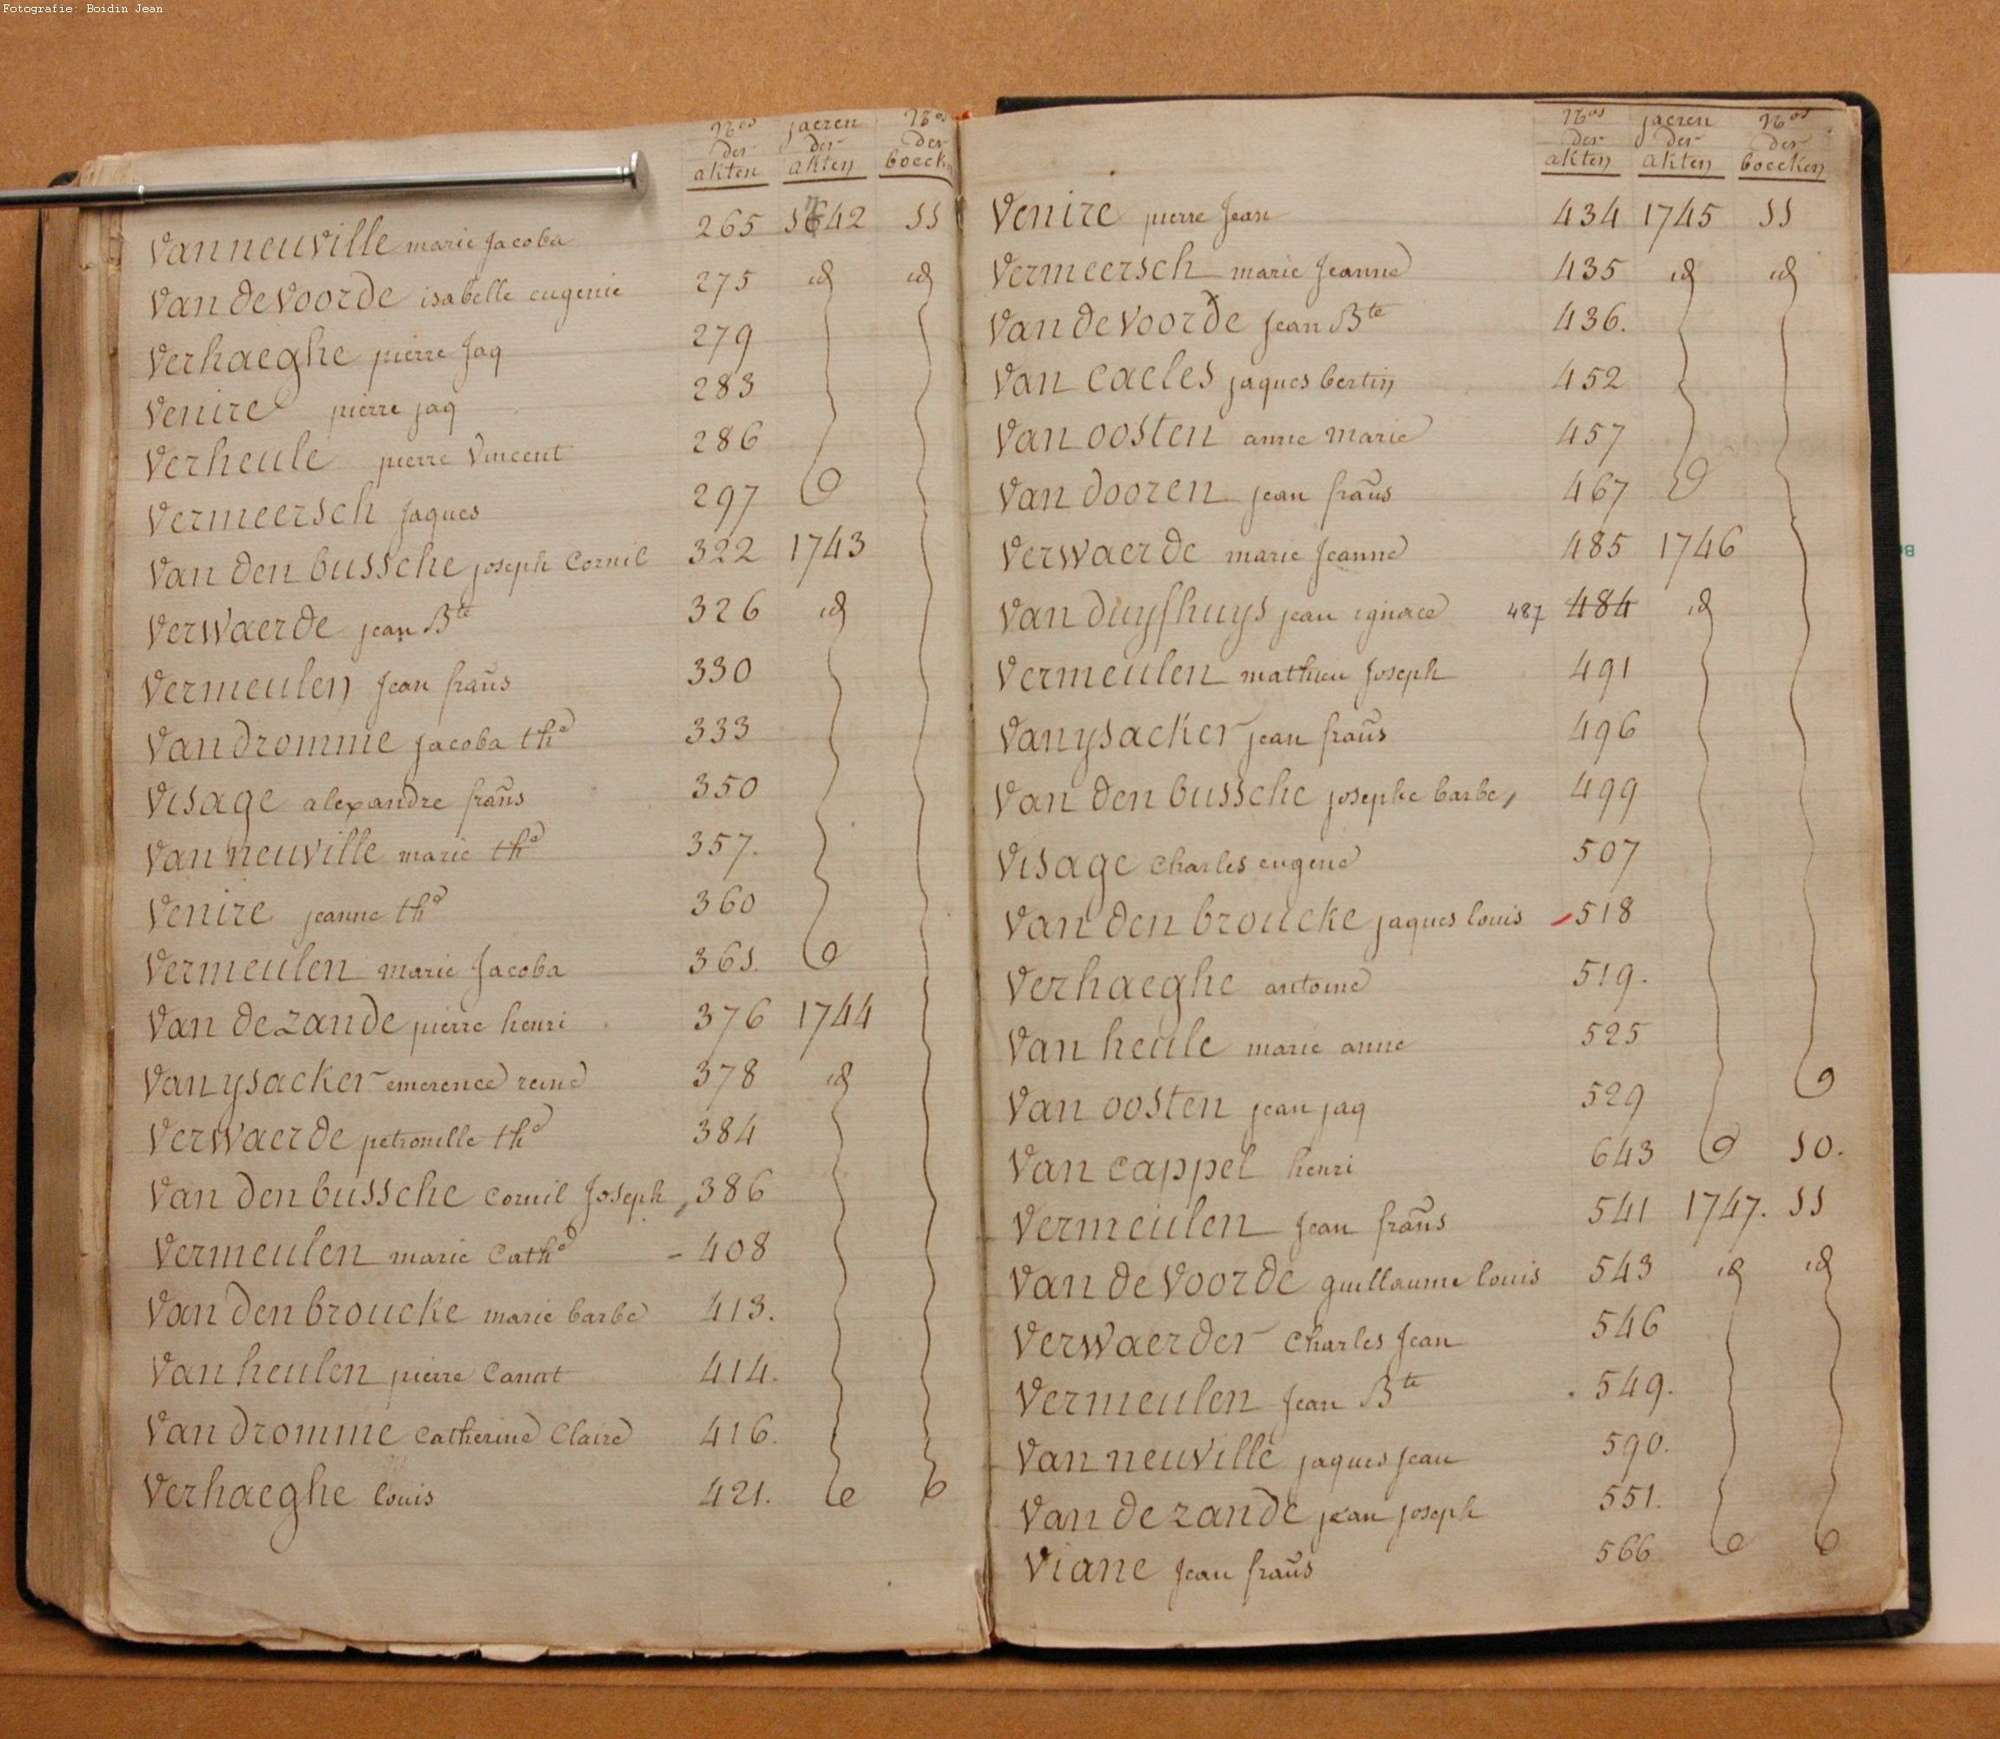 Fotografie: Boidin Jean
Nos der akten jaeren der akten Nos der boecken
Vanneuville marie Jacoba 265 1742 11
Van de Voorde isabelle eugenie 275 id id
Verhaeghe pierre Jaq 279
Venire pierre jaq 283
Verheule pierre Vincent 286
Vermeersch Jaques 297
Van den bussche joseph Cornil 322 1743
Verwaerde jean Bte 326 id
Vermeulen Jean frans 330
Van dromme Jacoba the 333
Visage alexandre frans 350
Van neuville marie the 357.
Venire jeanne the 360
Vermeulen marie Jacoba 361.
Van de zande pierre henri 376 1744
Van ysacker emerence reine 378 id
Verwaerde petronille the 384
Van den bussche Cornil Joseph, 386
Vermeulen marie Cathe - 408
Van den broucke marie barbe 413.
Van heulen pierre Canut 414.
Van dromme Catherine Claire 416.
Verhaeghe louis 421.
Nos der akten jaeren der akten Nos der boecken
Venire pierre Jean 434 1745 11
Vermeersch marie Jeanne 435 id id
Van de Voorde Jean Bte 436.
Van Caeles jaques bertin 452
Van oosten anne marie 457
Van dooren jean frans 467
Verwaerde marie Jeanne 485 1746
Van duyfhuys jean ignace 487 484 id
Vermeulen mathieu Joseph 491
Van ysacker jean frans 496
Van den bussche josephe barbe, 499
Visage Charles eugene 507
Van den broucke jaques louis 518
Verhaeghe antoine 519.
Van heule marie anne 525
Van oosten jean jaq 529
Van Cappel henri 643 10.
Vermeulen Jean frans 541 1747. 11
Van de Voorde guillaume louis 543 id id
Verwaerder Charles Jean 546
Vermeulen Jean Bte 549.
Van neuville jaques Jean 590.
Van de zande jean joseph 551.
Viane Jean frans 566